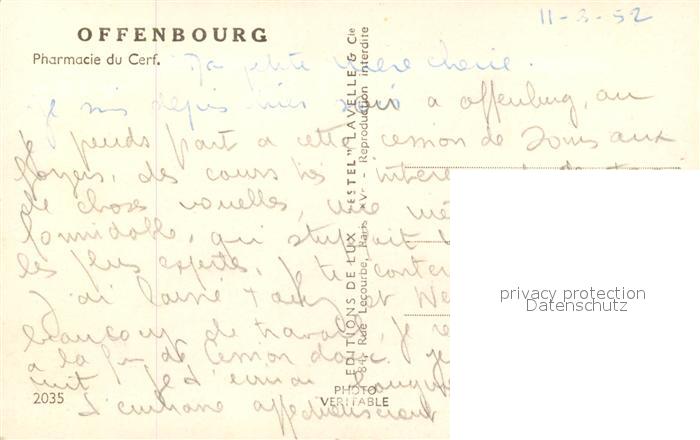 OFFENBOURG
Pharmacie du Cerf.
11-3-52
Ma petite mère cherie.
Je suis depuis hier soir a Offenburg, au
je prends part a cette cession de 3 jours aux
foyers, des cours très intere
de choses nouvelles, une mé
formidable, qui stupefait l
les plus experts, je te
J'ai laissé
beaucoup de travail, je re
a la fin de cession donc. je
nuit je t'ecrirai
t'embrasse affectueusement
2035
ÉDITIONS DE LUX "ESTEL" LAVELLE & Cie
84, Rue Lecourbe, Paris XVe - Reproduction interdite
PHOTO
VÉRITABLE
privacy protection
Datenschutz